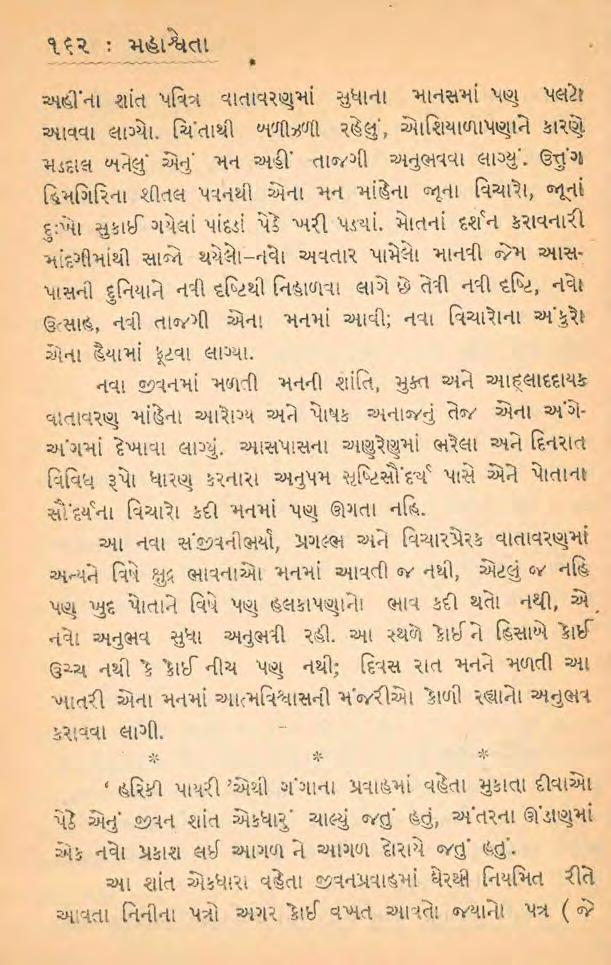 ૧૬૨ : મહાશ્વેતા
અહીંના શાંત પવિત્ર વાતાવરણમાં સુધાના માનસમાં પણ પલટો
આવવા લાગ્યો. ચિંતાથી બળીઝળી રહેલું, ઓશિયાળાપણાને કારણે
મડદાલ બનેલું એનું મન અહીં તાજગી અનુભવવા લાગ્યું. ઉત્તુંગ
હિમગિરિના શીતલ પવનથી એના મન માંહેના જૂના વિચારો, જૂનાં
દુઃખો સુકાઈ ગયેલાં પાંદડાં પેઠે ખરી પડ્યાં. મોતનાં દર્શન કરાવનારી
માંદગીમાંથી સાજો થયેલો–નવો અવતાર પામેલો માનવી જેમ આસ-
પાસની દુનિયાને નવી દૃષ્ટિથી નિહાળવા લાગે છે તેવી નવી દૃષ્ટિ, નવો
ઉત્સાહ, નવી તાજગી એના મનમાં આવી; નવા વિચારોના અંકુરો
એના હૈયામાં ફૂટવા લાગ્યા.
નવા જીવનમાં મળતી મનની શાંતિ, મુક્ત અને આહ્લાદદાયક
વાતાવરણ માંહેના આરોગ્ય અને પોષક અનાજનું તેજ એના અંગે-
અંગમાં દેખાવા લાગ્યું. આસપાસના અણુરેણુમાં ભરેલા અને દિનરાત
વિવિધ રૂપો ધારણ કરનારા અનુપમ સૃષ્ટિસૌંદર્ય પાસે એને પોતાના
સૌંદર્યના વિચારો કદી મનમાં પણ ઊગતા નહિ.
આ નવા સંજીવનીભર્યા, પ્રગલ્ભ અને વિચારપ્રેરક વાતાવરણમાં
અન્યને વિષે ક્ષુદ્ર ભાવનાઓ મનમાં આવતી જ નથી, એટલું જ નહિ
પણ ખુદ પોતાને વિષે પણ હલકાપણાનો ભાવ કદી થતો નથી, એ
નવો અનુભવ સુધા અનુભવી રહી. આ સ્થળે કોઈને હિસાબે કોઈ
ઉચ્ચ નથી કે કોઈ નીચ પણ નથી; દિવસ રાત મનને મળતી આ
ખાતરી એના મનમાં આત્મવિશ્વાસની મંજરીઓ કોળી રહ્યાનો અનુભવ
કરાવવા લાગી.
* * *
‘ હરિકી પાયરી ’એથી ગંગાના પ્રવાહમાં વહેતા મુકાતા દીવાઓ
પેઠે એનું જીવન શાંત એકધારું ચાલ્યું જતું હતું, અંતરના ઊંડાણમાં
એક નવો પ્રકાશ લઈ આગળ ને આગળ દોરાયે જતું હતું.
આ શાંત એકધારા વહેતા જીવનપ્રવાહમાં ઘેરથી નિયમિત રીતે
આવતા નિનીના પત્રો અગર કોઈ વખત આવતો જયાનો પત્ર ( જે